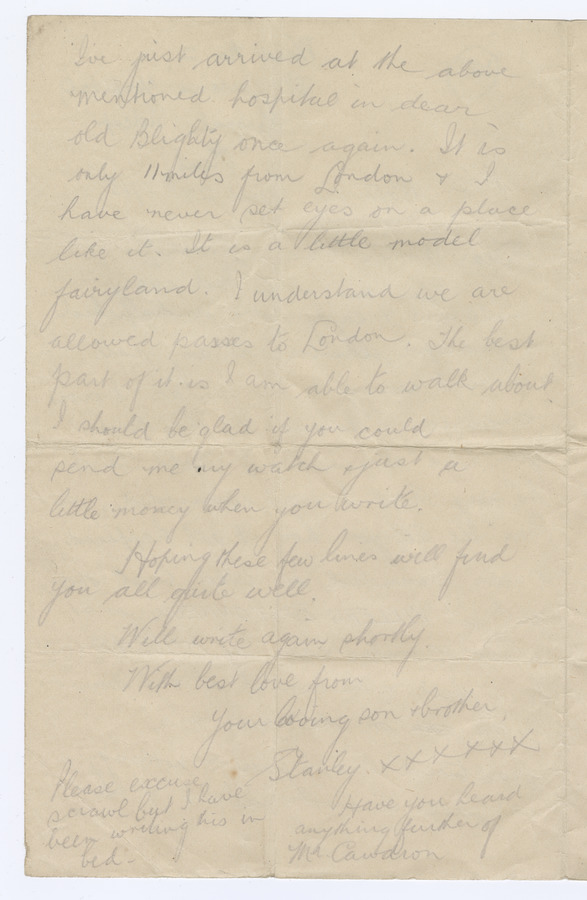 I've just arrived at the above
mentioned hospital in dear
old Blighty once again. It is
only 11 miles from London & I
have never set eyes on a place
like it. It is a little model
fairyland. I understand we are
allowed passes to London. The best
part of it is I am able to walk about.
I should be glad if you could
send me my watch & just a
little money when you write.
Hoping these few lines will find
you all quite well.
Will write again shortly.
With best love from
Your loving son & brother,
Stanley. x x x x x x
Please excuse
scrawl but I have
been writing this in
bed.
Have you heard
anything further of
Mr Cawdron